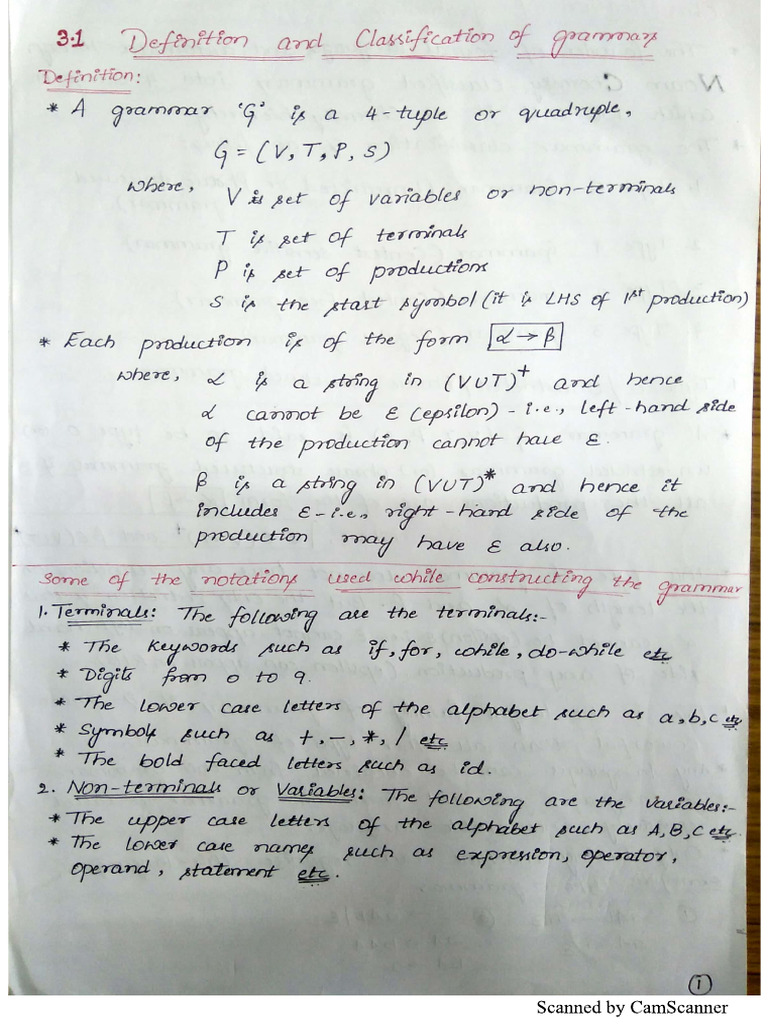 3.1 Definition and Classification of grammars
Definition:
* A grammar 'G' is a 4-tuple or quadruple,
G = (V, T, P, S)
where, V is set of variables or non-terminals
T is set of terminals
P is set of productions
S is the start symbol (it is LHS of 1st production)
* Each production is of the form α → β
where, α is a string in (VUT)+ and hence
α cannot be ε (epsilon) - i.e., left-hand side
of the production cannot have ε.
β is a string in (VUT)* and hence it
includes ε - i.e., right-hand side of the
production may have ε also.
Some of the notations used while constructing the grammar
1. Terminals: The following are the terminals:-
* The keywords such as if, for, while, do-while etc
* Digits from 0 to 9.
* The lower case letters of the alphabet such as a, b, c etc
* Symbols such as +, -, *, / etc
* The bold faced letters such as id.
2. Non-terminals or Variables: The following are the variables:-
* The upper case letters of the alphabet such as A, B, C etc.
* The lower case names such as expression, operator,
operand, statement etc.
1
Scanned by CamScanner